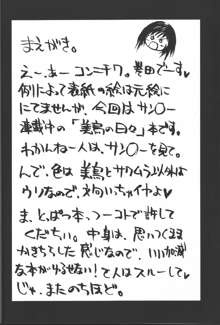 まえがき。
えー、あー コンニチワ。巻田でーす。
例によって表紙の絵は元絵に
にてませんが、今回はサン〇ー
連載中の「美鳥の日々」本です。
わかんねー人は、サン〇ーを見て。
んで、色は美鳥とサクムラ以外は
ウリなので、対向いちゃイヤよ♥
ま、とっぱつ本、つーコトで許して
くだちい。中身は、思いつくまま
かきちらした感じなので、いい加減
な本がゆるせない!て人はスルーして♥
じゃ、またのちほど。